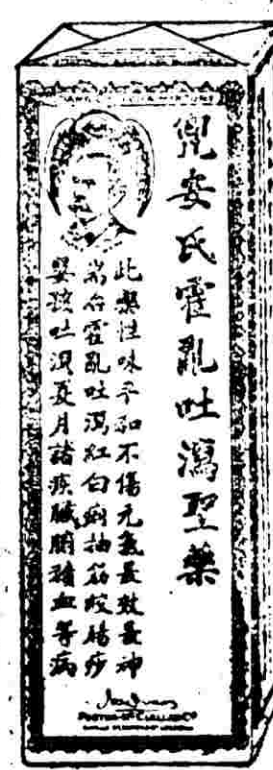 兜安氏霍亂吐瀉聖藥
此藥性味平和不傷元氣最效最神
若有霍亂吐瀉紅白痢抽筋絞腸痧
嬰孩吐瀉夏月諸疾臟腑積血等病
FOSTER-McCLELLAN Co